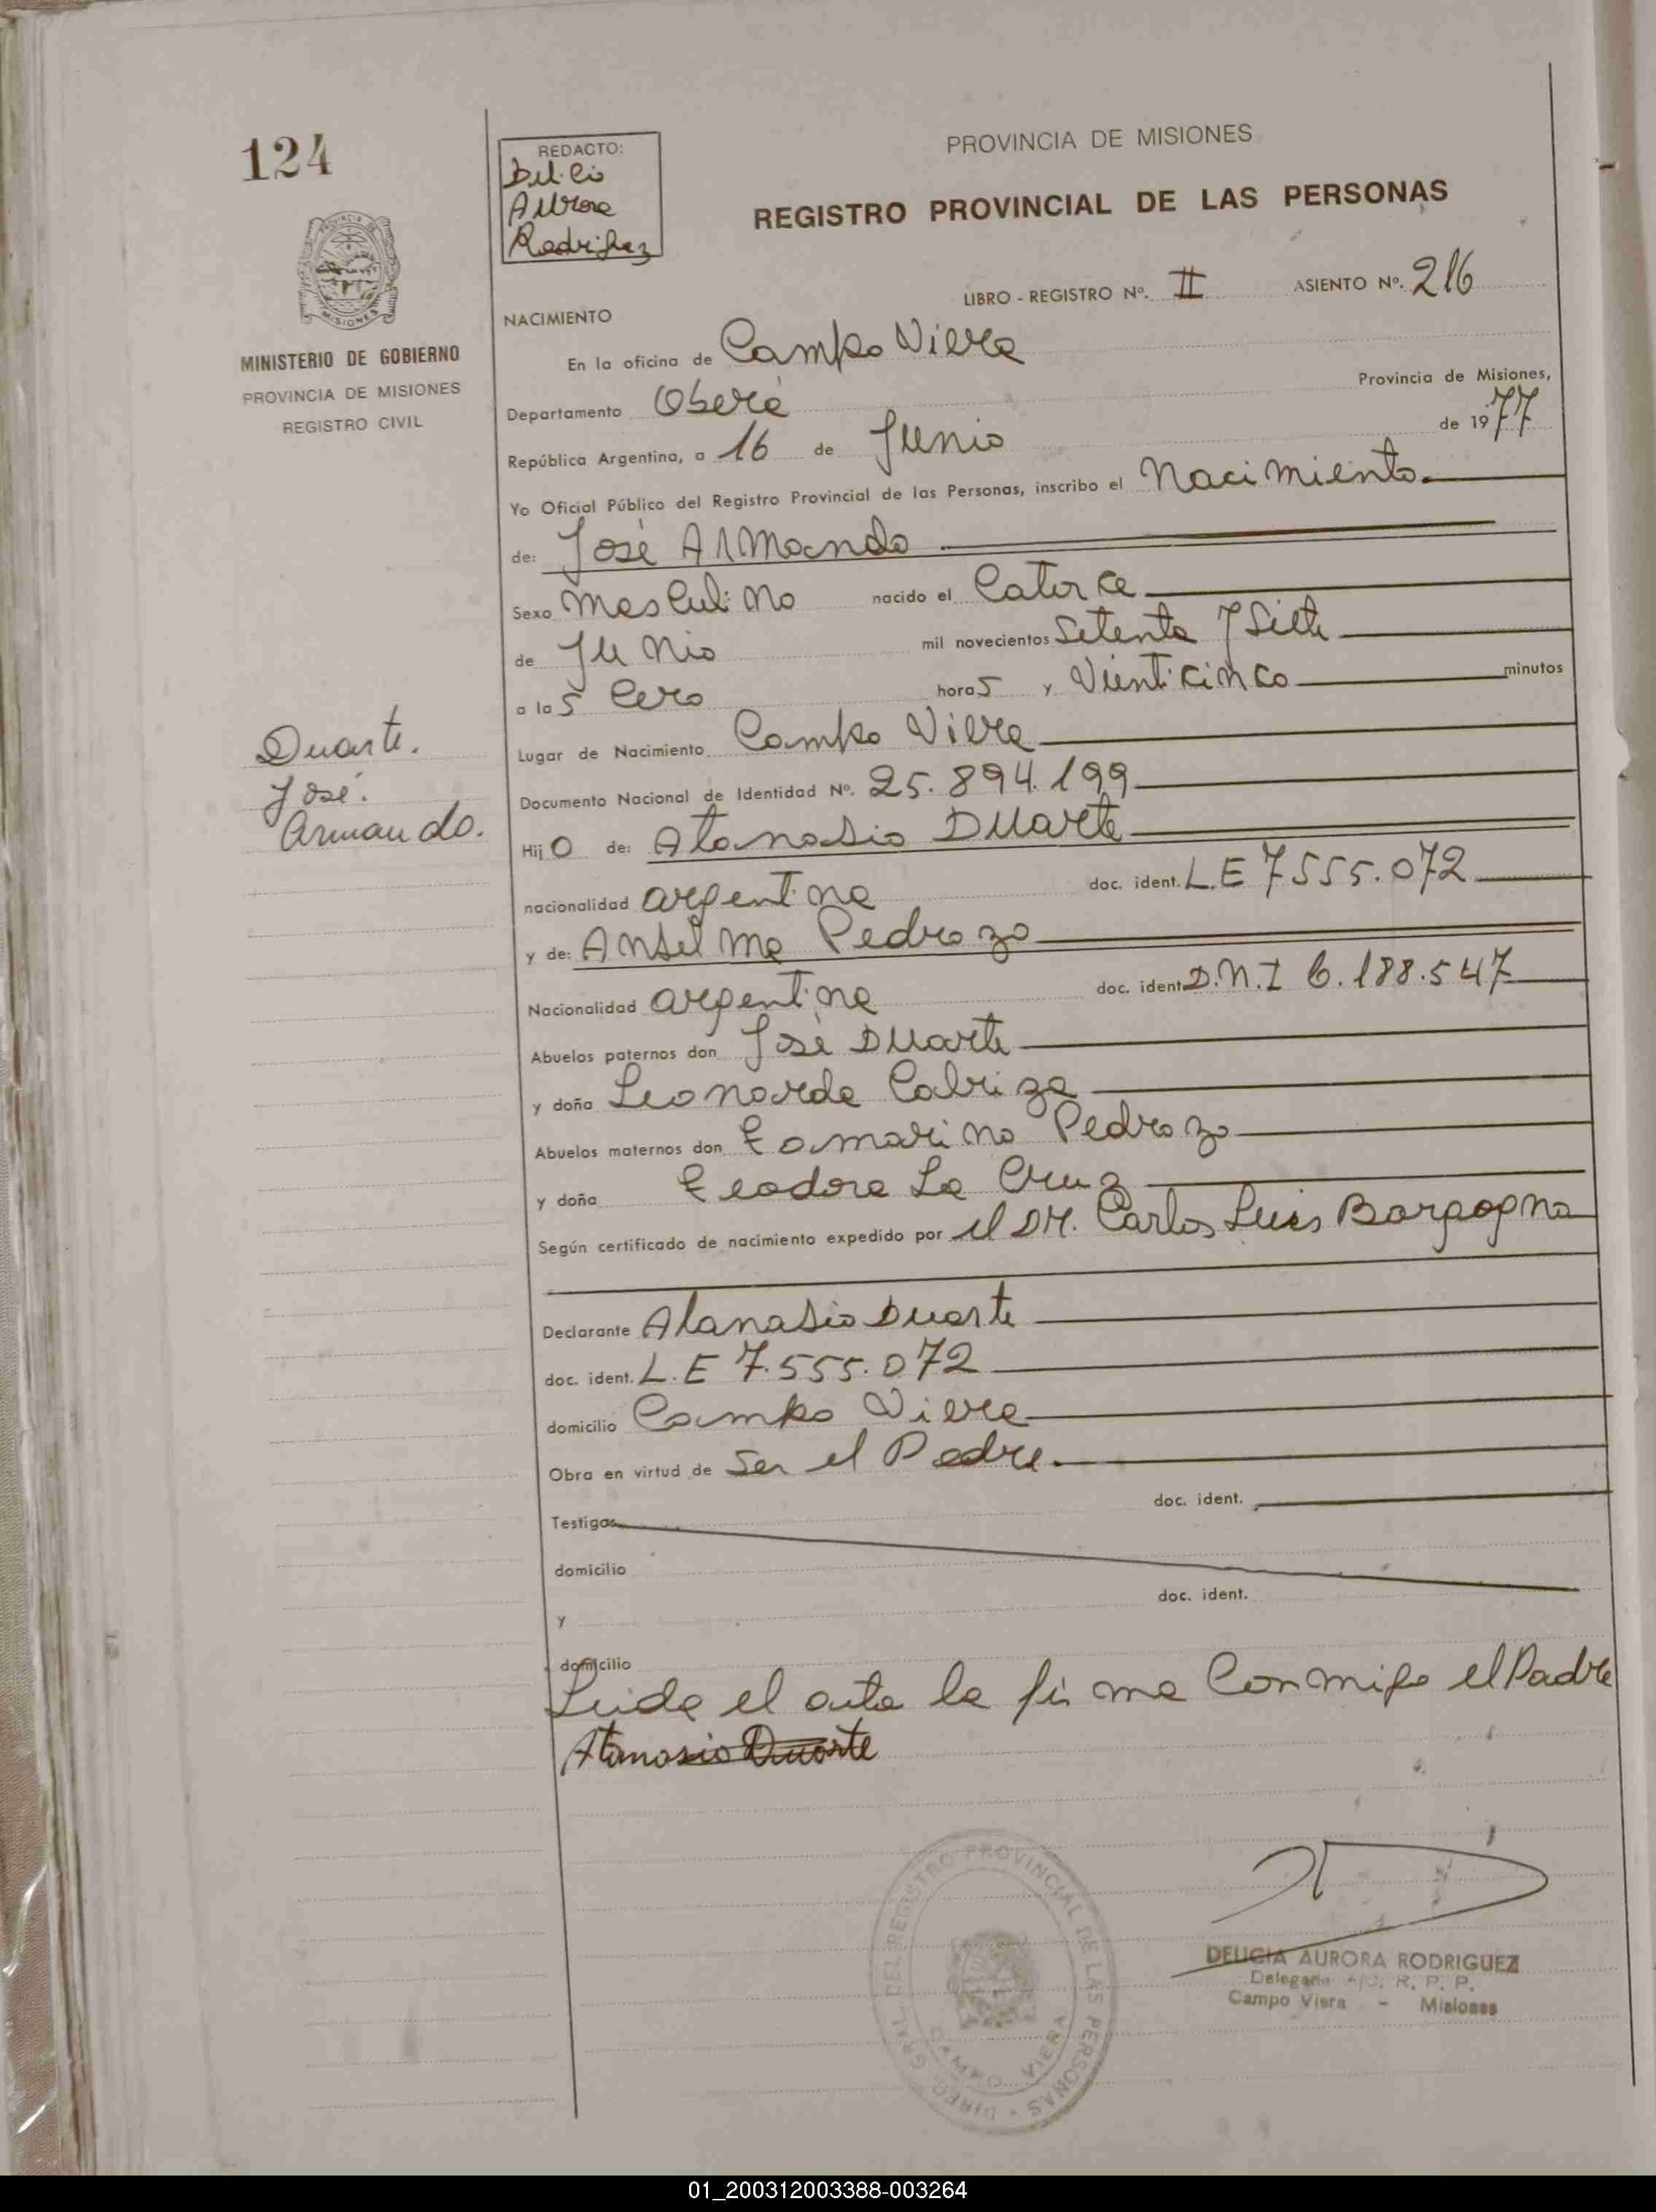 124
REDACTO:
Delicia
Aurora
Rodriguez
PROVINCIA DE MISIONES
REGISTRO PROVINCIAL DE LAS PERSONAS
LIBRO - REGISTRO Nº. II ASIENTO Nº. 216
MISIONES
MINISTERIO DE GOBIERNO
PROVINCIA DE MISIONES
REGISTRO CIVIL
NACIMIENTO
En la oficina de Campo Viera
Departamento Oberá Provincia de Misiones,
República Argentina, a 16 de Junio de 1977
Yo Oficial Público del Registro Provincial de las Personas, inscribo el Nacimiento
de: José Armando
Sexo Masculino nacido el Catorce
de Junio mil novecientos Setenta y Siete
a las Cero horas y Vienticinco minutos
Lugar de Nacimiento Campo Viera
Duarte.
José.
Armando.
Documento Nacional de Identidad Nº. 25.894.199
Hijo de: Atanasio Duarte
nacionalidad argentina doc. ident. L.E 7555.072
y de: Anselma Pedrozo
Nacionalidad argentina doc. ident D.N.I 6.188.547
Abuelos paternos don José Duarte
y doña Leonarda Cabriza
Abuelos maternos don Pedrozo
y doña La Cruz
Según certificado de nacimiento expedido por el DR. Carlos Luis Borgogna
Declarante Atanasio Duarte
doc. ident. L.E 7.555.072
domicilio Campo Viera
Obra en virtud de Ser el Padre.
doc. ident.
Testigos
domicilio
doc. ident.
y
domicilio
Leida el acta la firma Conmigo el Padre
Atanasio Duarte
DIREC. GRAL. DEL REGISTRO PROVINCIAL DE LAS PERSONAS
CAMPO VIERA
DELICIA AURORA RODRIGUEZ
Delegada A/C. R. P. P.
Campo Viera - Misiones
01_200312003388-003264